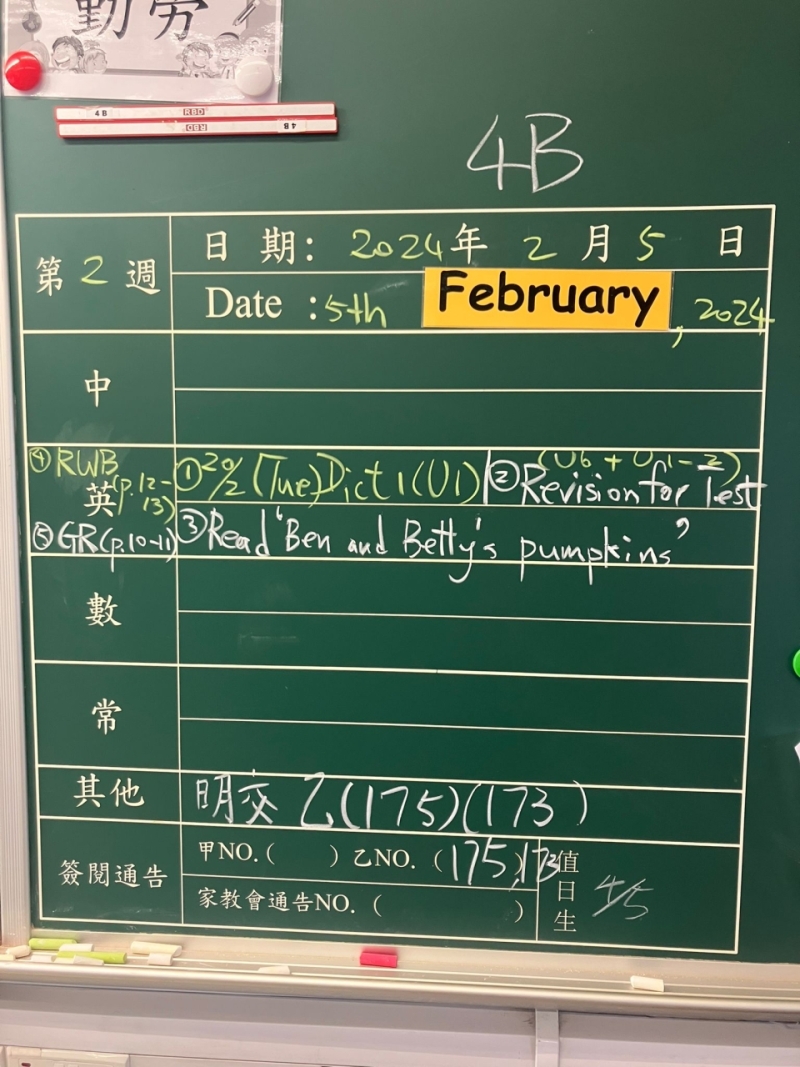 勤勞
4B RBD
RBD 4B
4B
第 2 週
日 期: 2024 年 2 月 5 日
Date : 5th February, 2024
中
④ RWB (p.12-13)
英
⑤ GR (p.10-11)
① 20/2 (Tue) Dict 1 (U1) ② Revision for Test (U6 + U1-2)
③ Read 'Ben and Betty's pumpkins'
數
常
其他
明交 乙(175)(173)
簽閱通告
甲NO.( ) 乙NO. (175,173)
家教會通告NO. ( )
值日生
4/5